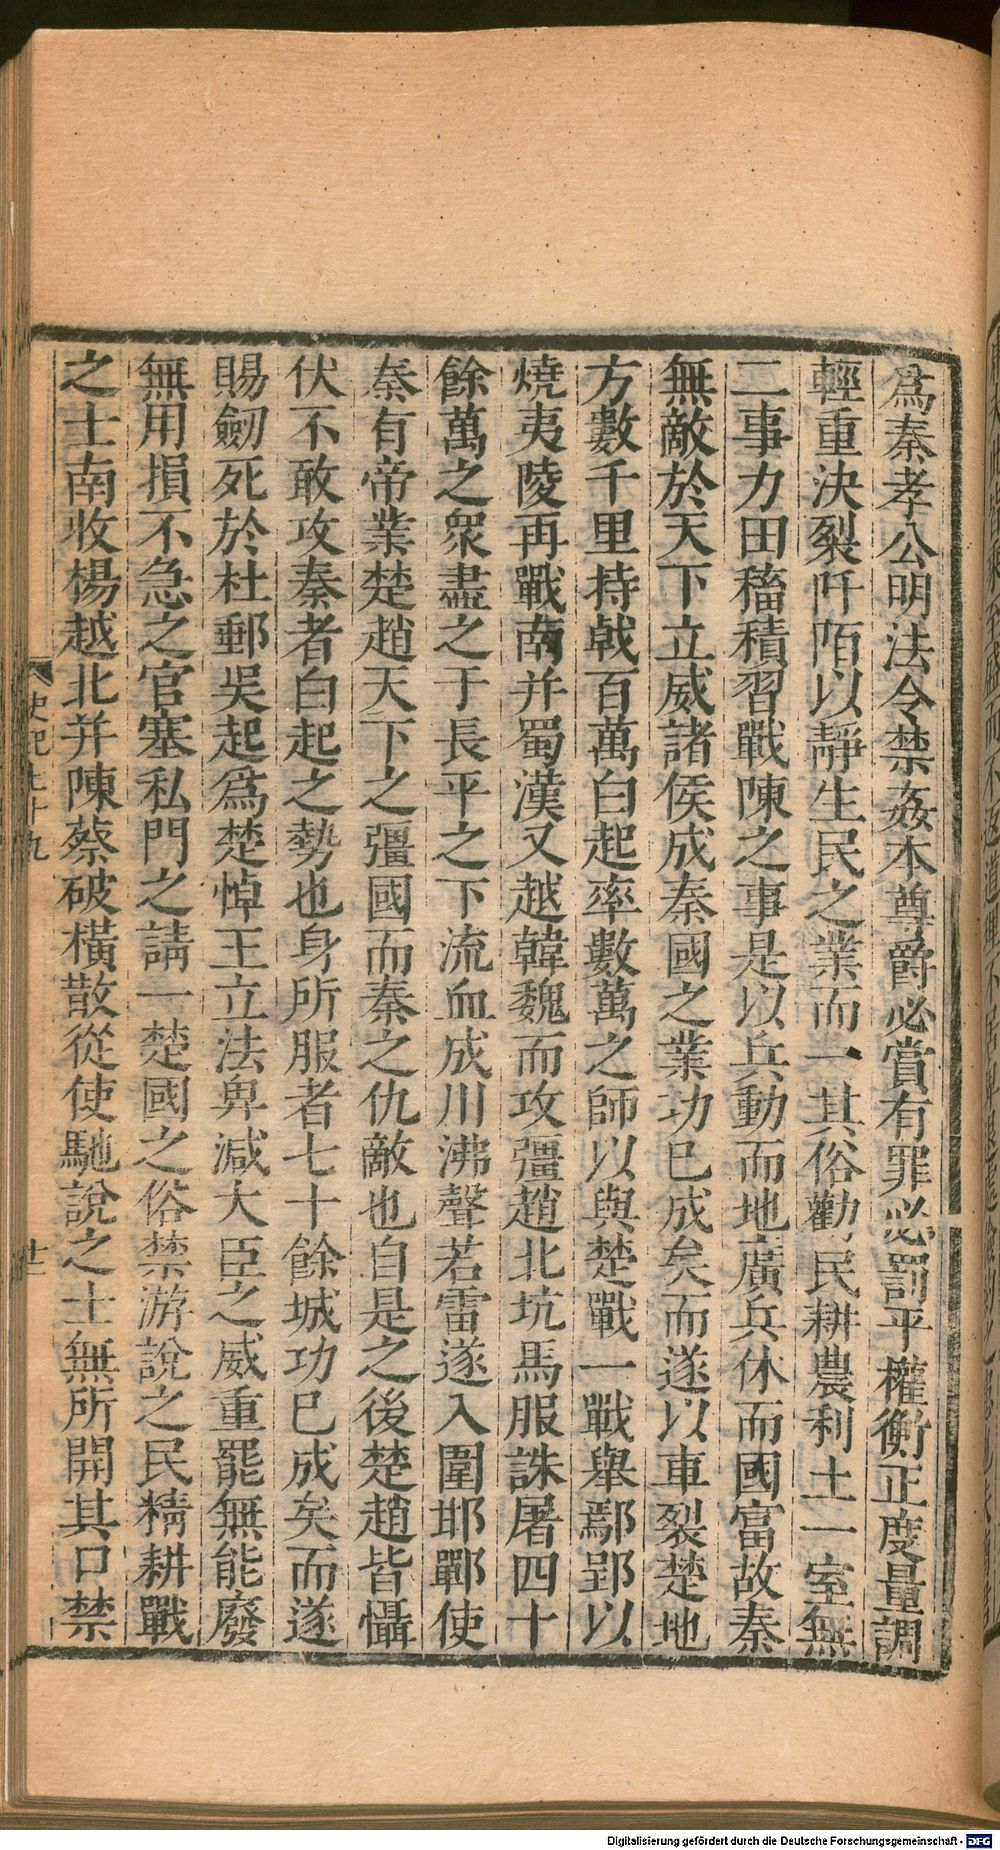 爲秦孝公明法令禁姦本尊爵必賞有罪必罰平權衡正度量調
輕重決裂阡陌以靜生民之業而一其俗勸民耕農利土一室無
二事力田稸積習戰陳之事是以兵動而地廣兵休而國富故秦
無敵於天下立威諸侯成秦國之業功已成矣而遂以車裂楚地
方數千里持戟百萬白起率數萬之師以與楚戰一戰舉鄢郢以
燒夷陵再戰南并蜀漢又越韓魏而攻彊趙北坑馬服誅屠四十
餘萬之眾盡之于長平之下流血成川沸聲若雷遂入圍邯鄲使
秦有帝業楚趙天下之彊國而秦之仇敵也自是之後楚趙皆懾
伏不敢攻秦者白起之勢也身所服者七十餘城功已成矣而遂
賜劒死於杜郵吳起爲楚悼王立法卑減大臣之威重罷無能廢
無用損不急之官塞私門之請一楚國之俗禁游說之民精耕戰
之士南收楊越北并陳蔡破橫散從使馳說之士無所開其口禁
史記七十九
廿一
Digitalisierung gefördert durch die Deutsche Forschungsgemeinschaft - DFG